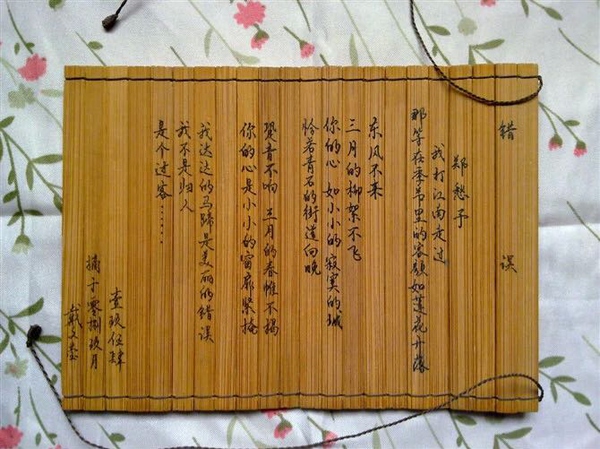 错 误
郑愁予
我打江南走过
那等在季节里的容颜如莲花开落
东风不来
三月的柳絮不飞
你的心 如小小的寂寞的城
恰若青石的街道向晚
跫音不响 三月的春帷不揭
你的心是小小的窗扉紧掩
我达达的马蹄是美丽的错误
我不是归人
是个过客……
壹玖伍肆
摘于零捌玖月
戴文